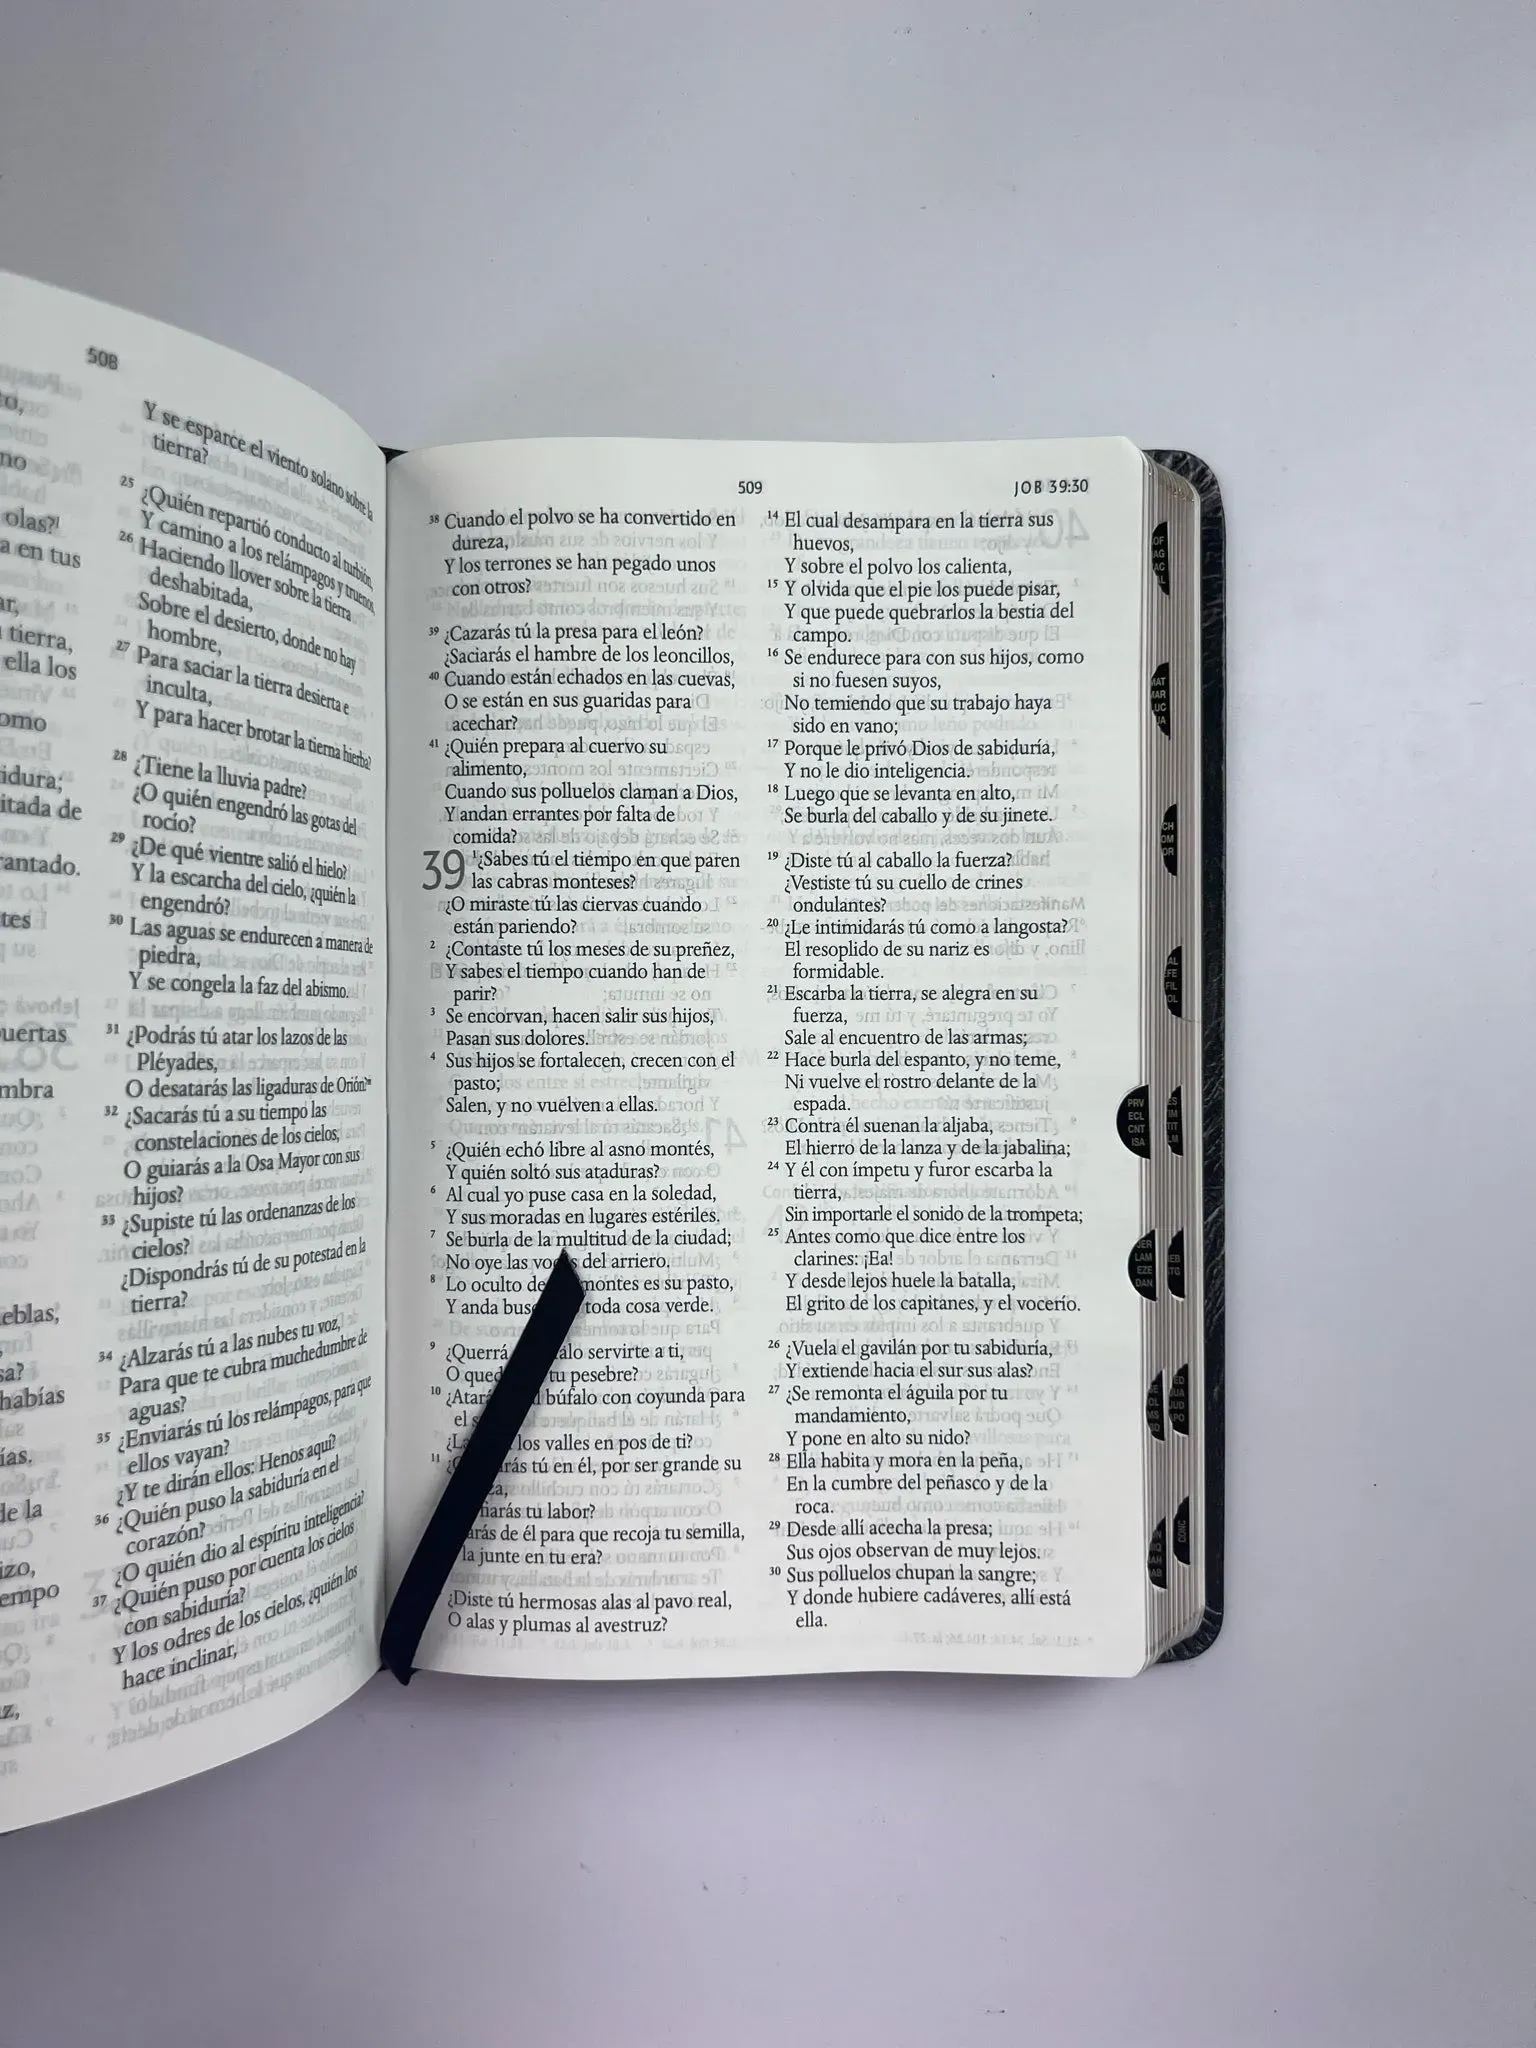 508
to,
no
olas?
a en tus
ar,
tierra,
ella los
omo
idura;
itada de
rantado.
tes
uertas
mbra
eblas,
sa?
habías
ías.
de la
izo,
empo
z,
Y se esparce el viento solano sobre la
tierra?
25 ¿Quién repartió conducto al turbión,
Y camino a los relámpagos y truenos,
26 Haciendo llover sobre la tierra
deshabitada,
Sobre el desierto, donde no hay
hombre,
27 Para saciar la tierra desierta e
inculta,
Y para hacer brotar la tierna hierba?
28 ¿Tiene la lluvia padre?
¿O quién engendró las gotas del
rocío?
29 ¿De qué vientre salió el hielo?
Y la escarcha del cielo, ¿quién la
engendró?
30 Las aguas se endurecen a manera de
piedra,
Y se congela la faz del abismo.
31 ¿Podrás tú atar los lazos de las
Pléyades,
O desatarás las ligaduras de Orión?
32 ¿Sacarás tú a su tiempo las
constelaciones de los cielos,
O guiarás a la Osa Mayor con sus
hijos?
33 ¿Supiste tú las ordenanzas de los
cielos?
¿Dispondrás tú de su potestad en la
tierra?
34 ¿Alzarás tú a las nubes tu voz,
Para que te cubra muchedumbre de
aguas?
35 ¿Enviarás tú los relámpagos, para que
ellos vayan?
¿Y te dirán ellos: Henos aquí?
36 ¿Quién puso la sabiduría en el
corazón?
¿O quién dio al espíritu inteligencia?
37 ¿Quién puso por cuenta los cielos
con sabiduría?
Y los odres de los cielos, ¿quién los
hace inclinar,
509
JOB 39:30
38 Cuando el polvo se ha convertido en
dureza,
Y los terrones se han pegado unos
con otros?
39 ¿Cazarás tú la presa para el león?
¿Saciarás el hambre de los leoncillos,
40 Cuando están echados en las cuevas,
O se están en sus guaridas para
acechar?
41 ¿Quién prepara al cuervo su
alimento,
Cuando sus polluelos claman a Dios,
Y andan errantes por falta de
comida?
39 1 ¿Sabes tú el tiempo en que paren
las cabras monteses?
¿O miraste tú las ciervas cuando
están pariendo?
2 ¿Contaste tú los meses de su preñez,
Y sabes el tiempo cuando han de
parir?
3 Se encorvan, hacen salir sus hijos,
Pasan sus dolores.
4 Sus hijos se fortalecen, crecen con el
pasto;
Salen, y no vuelven a ellas.
5 ¿Quién echó libre al asno montés,
Y quién soltó sus ataduras?
6 Al cual yo puse casa en la soledad,
Y sus moradas en lugares estériles.
7 Se burla de la multitud de la ciudad;
No oye las voces del arriero.
8 Lo oculto de montes es su pasto,
Y anda bus toda cosa verde.
9 ¿Querrá alo servirte a ti,
O qued tu pesebre?
10 ¿Atar búfalo con coyunda para
el s
¿La los valles en pos de ti?
11 rás tú en él, por ser grande su
za,
fiarás tu labor?
arás de él para que recoja tu semilla,
la junte en tu era?
¿Diste tú hermosas alas al pavo real,
O alas y plumas al avestruz?
14 El cual desampara en la tierra sus
huevos,
Y sobre el polvo los calienta,
15 Y olvida que el pie los puede pisar,
Y que puede quebrarlos la bestia del
campo.
16 Se endurece para con sus hijos, como
si no fuesen suyos,
No temiendo que su trabajo haya
sido en vano;
17 Porque le privó Dios de sabiduría,
Y no le dio inteligencia.
18 Luego que se levanta en alto,
Se burla del caballo y de su jinete.
19 ¿Diste tú al caballo la fuerza?
¿Vestiste tú su cuello de crines
ondulantes?
20 ¿Le intimidarás tú como a langosta?
El resoplido de su nariz es
formidable.
21 Escarba la tierra, se alegra en su
fuerza,
Sale al encuentro de las armas;
22 Hace burla del espanto, y no teme,
Ni vuelve el rostro delante de la
espada.
23 Contra él suenan la aljaba,
El hierro de la lanza y de la jabalina;
24 Y él con ímpetu y furor escarba la
tierra,
Sin importarle el sonido de la trompeta;
25 Antes como que dice entre los
clarines: ¡Ea!
Y desde lejos huele la batalla,
El grito de los capitanes, y el vocerío.
26 ¿Vuela el gavilán por tu sabiduría,
Y extiende hacia el sur sus alas?
27 ¿Se remonta el águila por tu
mandamiento,
Y pone en alto su nido?
28 Ella habita y mora en la peña,
En la cumbre del peñasco y de la
roca.
29 Desde allí acecha la presa;
Sus ojos observan de muy lejos.
30 Sus polluelos chupan la sangre;
Y donde hubiere cadáveres, allí está
ella.
PRV
ECL
CNT
ISA
JER
LAM
EZE
DAN
CONC